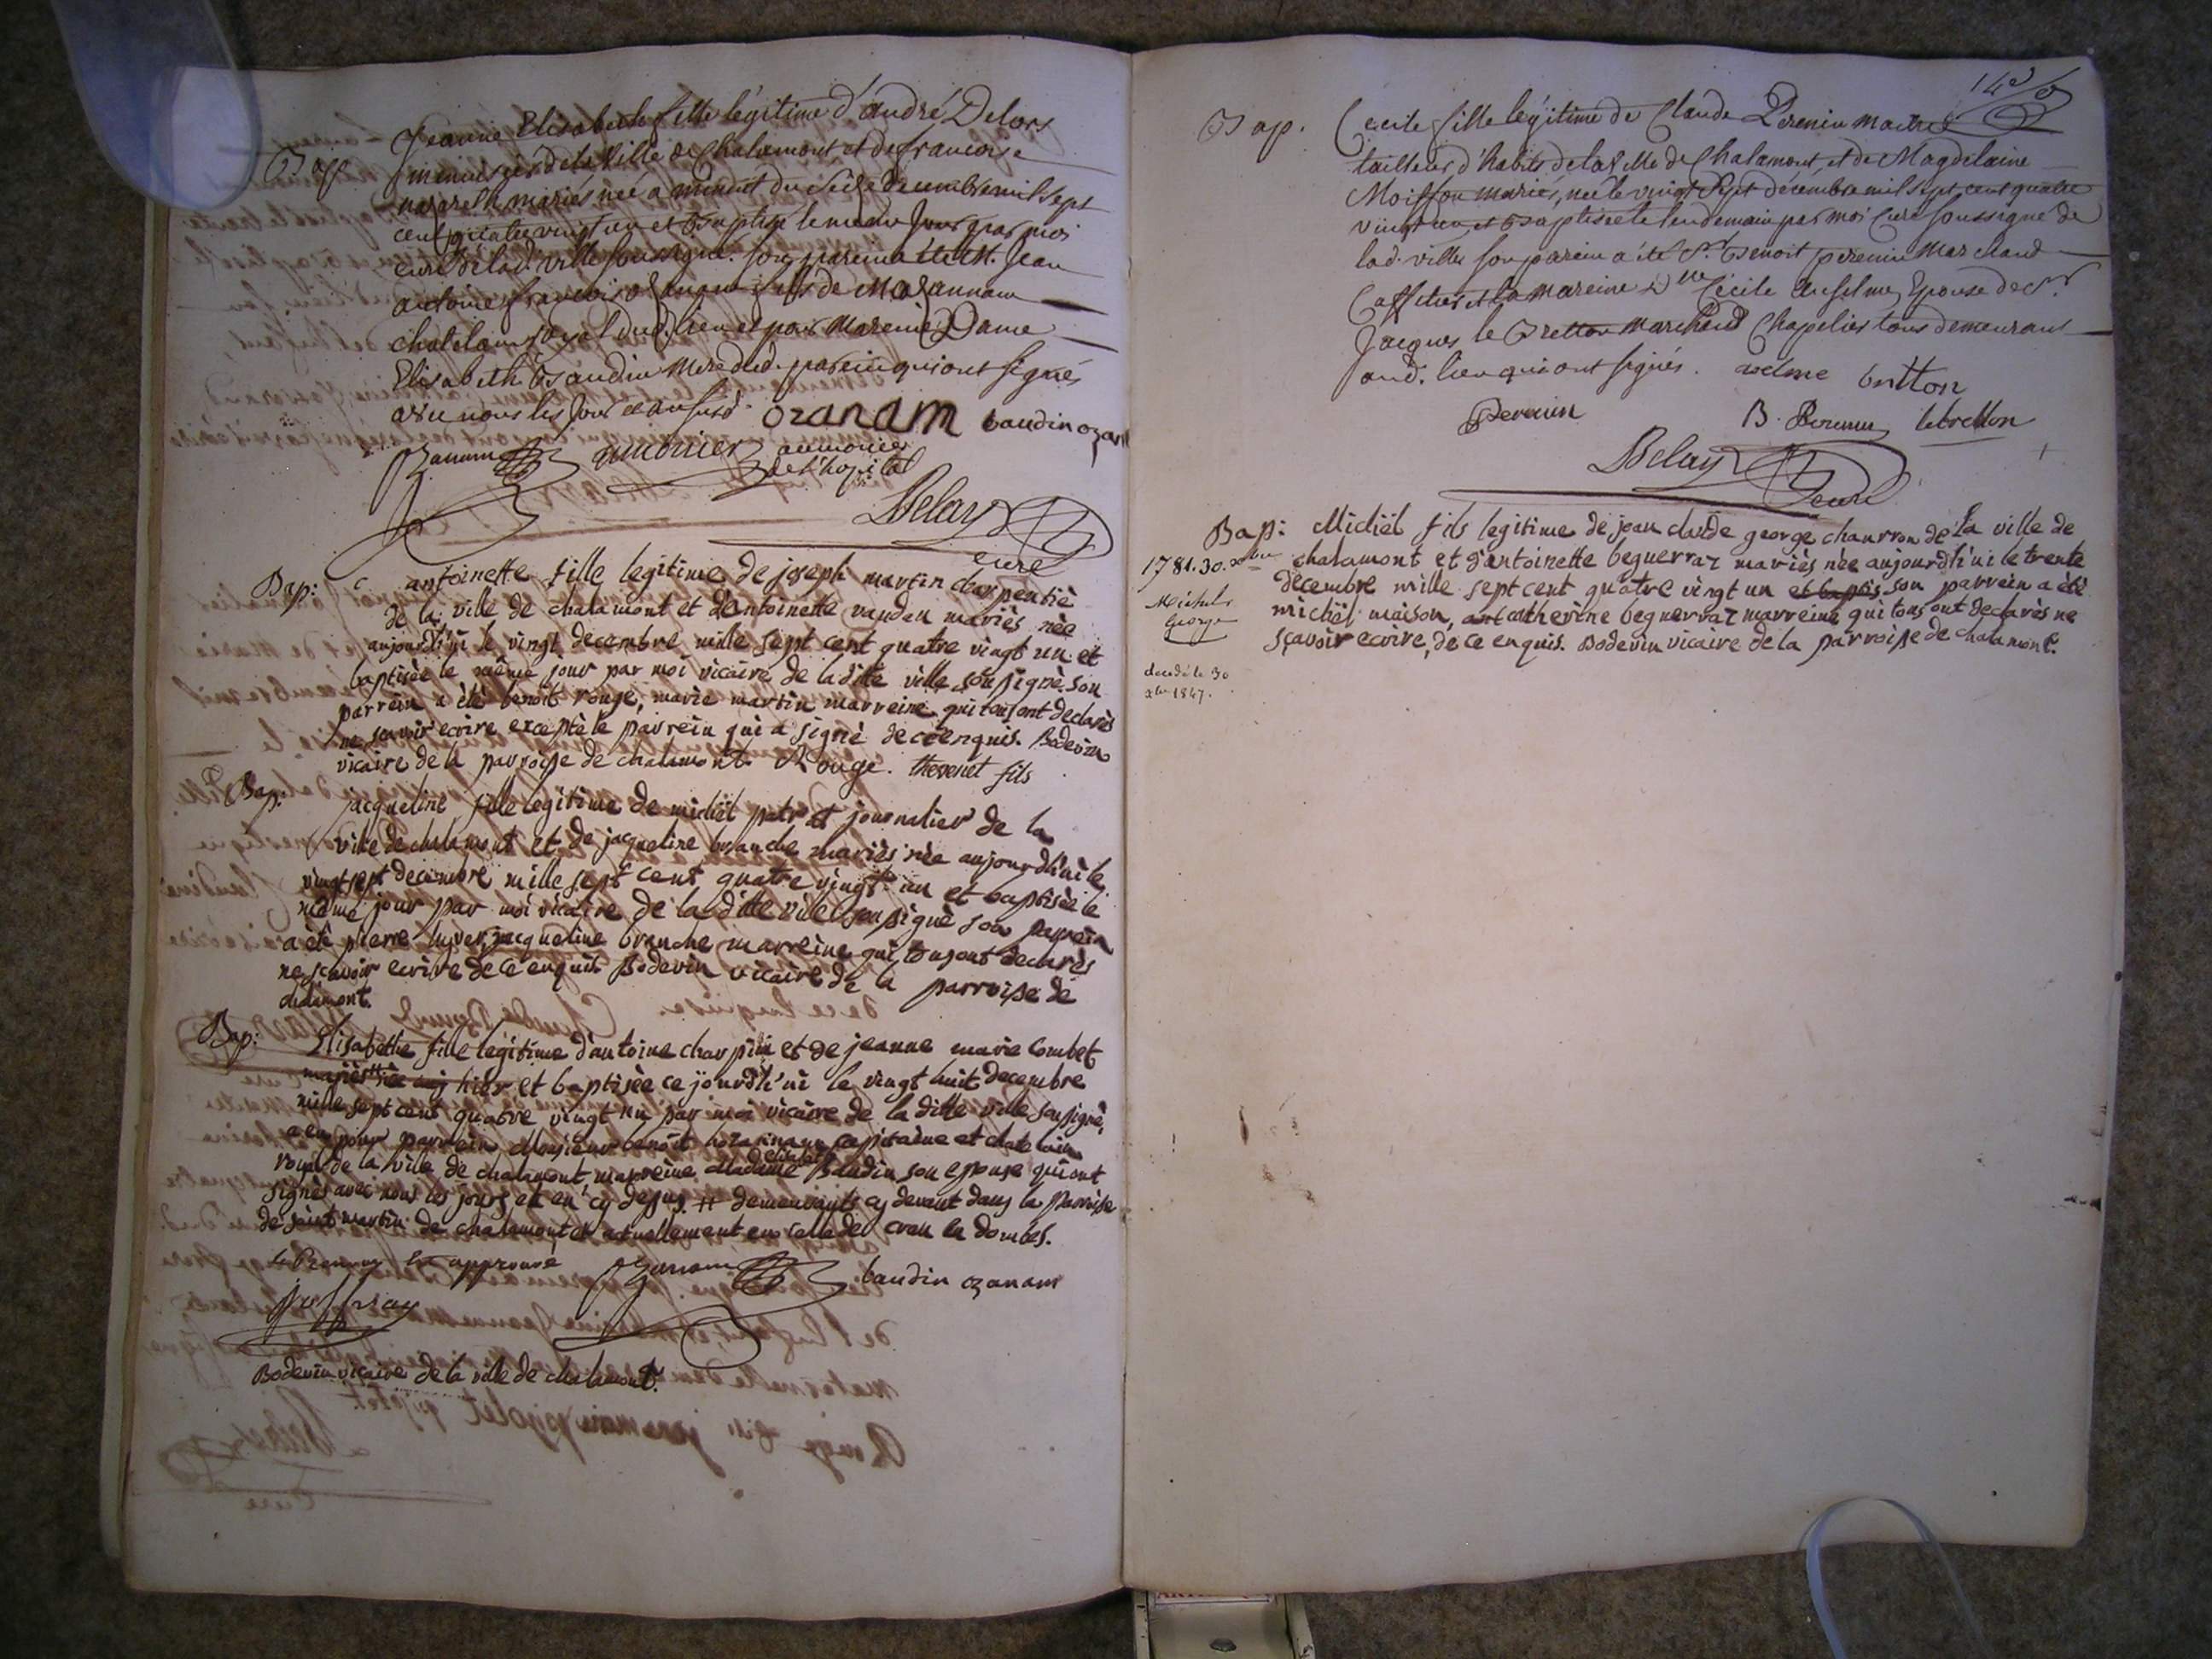 Bap
Jeanne Elisabeth fille légitime d'andré Delors
menuisier de la Ville de Chalamont et de francoise
nazareth mariés née a minuit du seize decembre mil sept
cent quatre vingt un et baptisée le meme Jour par moi
curé de lad. ville soussigné. son parein a été M. Jean
antoine francois ozanam fils de M ozannam
chatelain royal dud. lieu et pour Mareine Dame
Elisabeth Baudin Mere dud. parein qui ont signés
avec nous les Jour et an susd. ozanam baudin ozanam
ozanam aumonier
de l'hopital
Delay
curé
Bap: antoinette fille legitime de joseph martin charpentiè
de la ville de chalamont et d'antoinette mariès nèe
aujourdh'ui le vingt decembre mille sept cent quatre vingt un et
baptisèe le même jour par moi vicaire de la ditte ville soussignè. son
parrein a ètè benoit rouge, marie martin marreine qui tous ont declarès
ne sçavoir ecrire exceptè le parrein qui a signè de ce enquis. Bodevin
vicaire de la parroisse de chalamont. Rouge. thevenet fils
Bap: jacqueline fille legitime de michel patrat journalier de la
ville de chalamont et de jacqueline branche mariès nèe aujourdh'ui le
vingt sept decembre mille sept cent quatre vingt un et baptisèe le
même jour par moi vicaire de la ditte ville soussignè son parrein
a ètè pierre jacqueline branche marreine qui tous ont declarès
ne sçavoir ecrire de ce enquis Bodevin vicaire de la parroisse de
chalamont.
Bap: Elisabethe fille legitime d'antoine charpin et de jeanne marie Combet
mariès # nèe auj hier et baptisèe ce jourdh'ui le vingt huit decembre
mille sept cent quatre vingt un par moi vicaire de la ditte ville soussignè,
a eu pour parrein Monsieur benoit capitaine et chatelain
royal de la ville de chalamont, marreine Madame elisabeth Baudin son epouse qui ont
signès avec nous les jours et en cy dessus. # demeurants cy devant dans la parroisse
de saint martin de chalamont et actuellement en celle de cran en dombes.
le Renvoy est approuvé ozanam baudin ozanam
joffray
Bodevin vicaire de la ville de chalamont.
Bap. Cecile fille légitime de Claude Perenin maitre
tailleur d'habits de la Ville de Chalamont, et de Magdelaine
Moisson mariés, née le vingt Sept décembre mil sept cent quatre
vingt un et Baptisée le lendemain par moi Curé soussigné de
lad. ville son parein a été Sr. Benoit perenin Marchand
Caffetier et la mareine Dlle Cécile Anselme Epouse de Sr.
Jacques le Bretton Marchand Chapelier tous demeurans
aud. lieu qui ont signés. bretton
Perenin B. Perenin lebretton
Delay
curé
Bap: Michel fils legitime de jean claude george de la ville de
chalamont et d'antoinette beguerraz mariès nèe aujourdh'ui le trente
decembre mille sept cent quatre vingt un et baptis son parrein a ètè
michel maison, ant catherine beguerraz marreine qui tous ont declarès ne
sçavoir ecrire, de ce enquis. Bodevin vicaire de la parroisse de chalamont.
1781. 30. xbre
Michel
George
decedé le 30
xbre 1847.